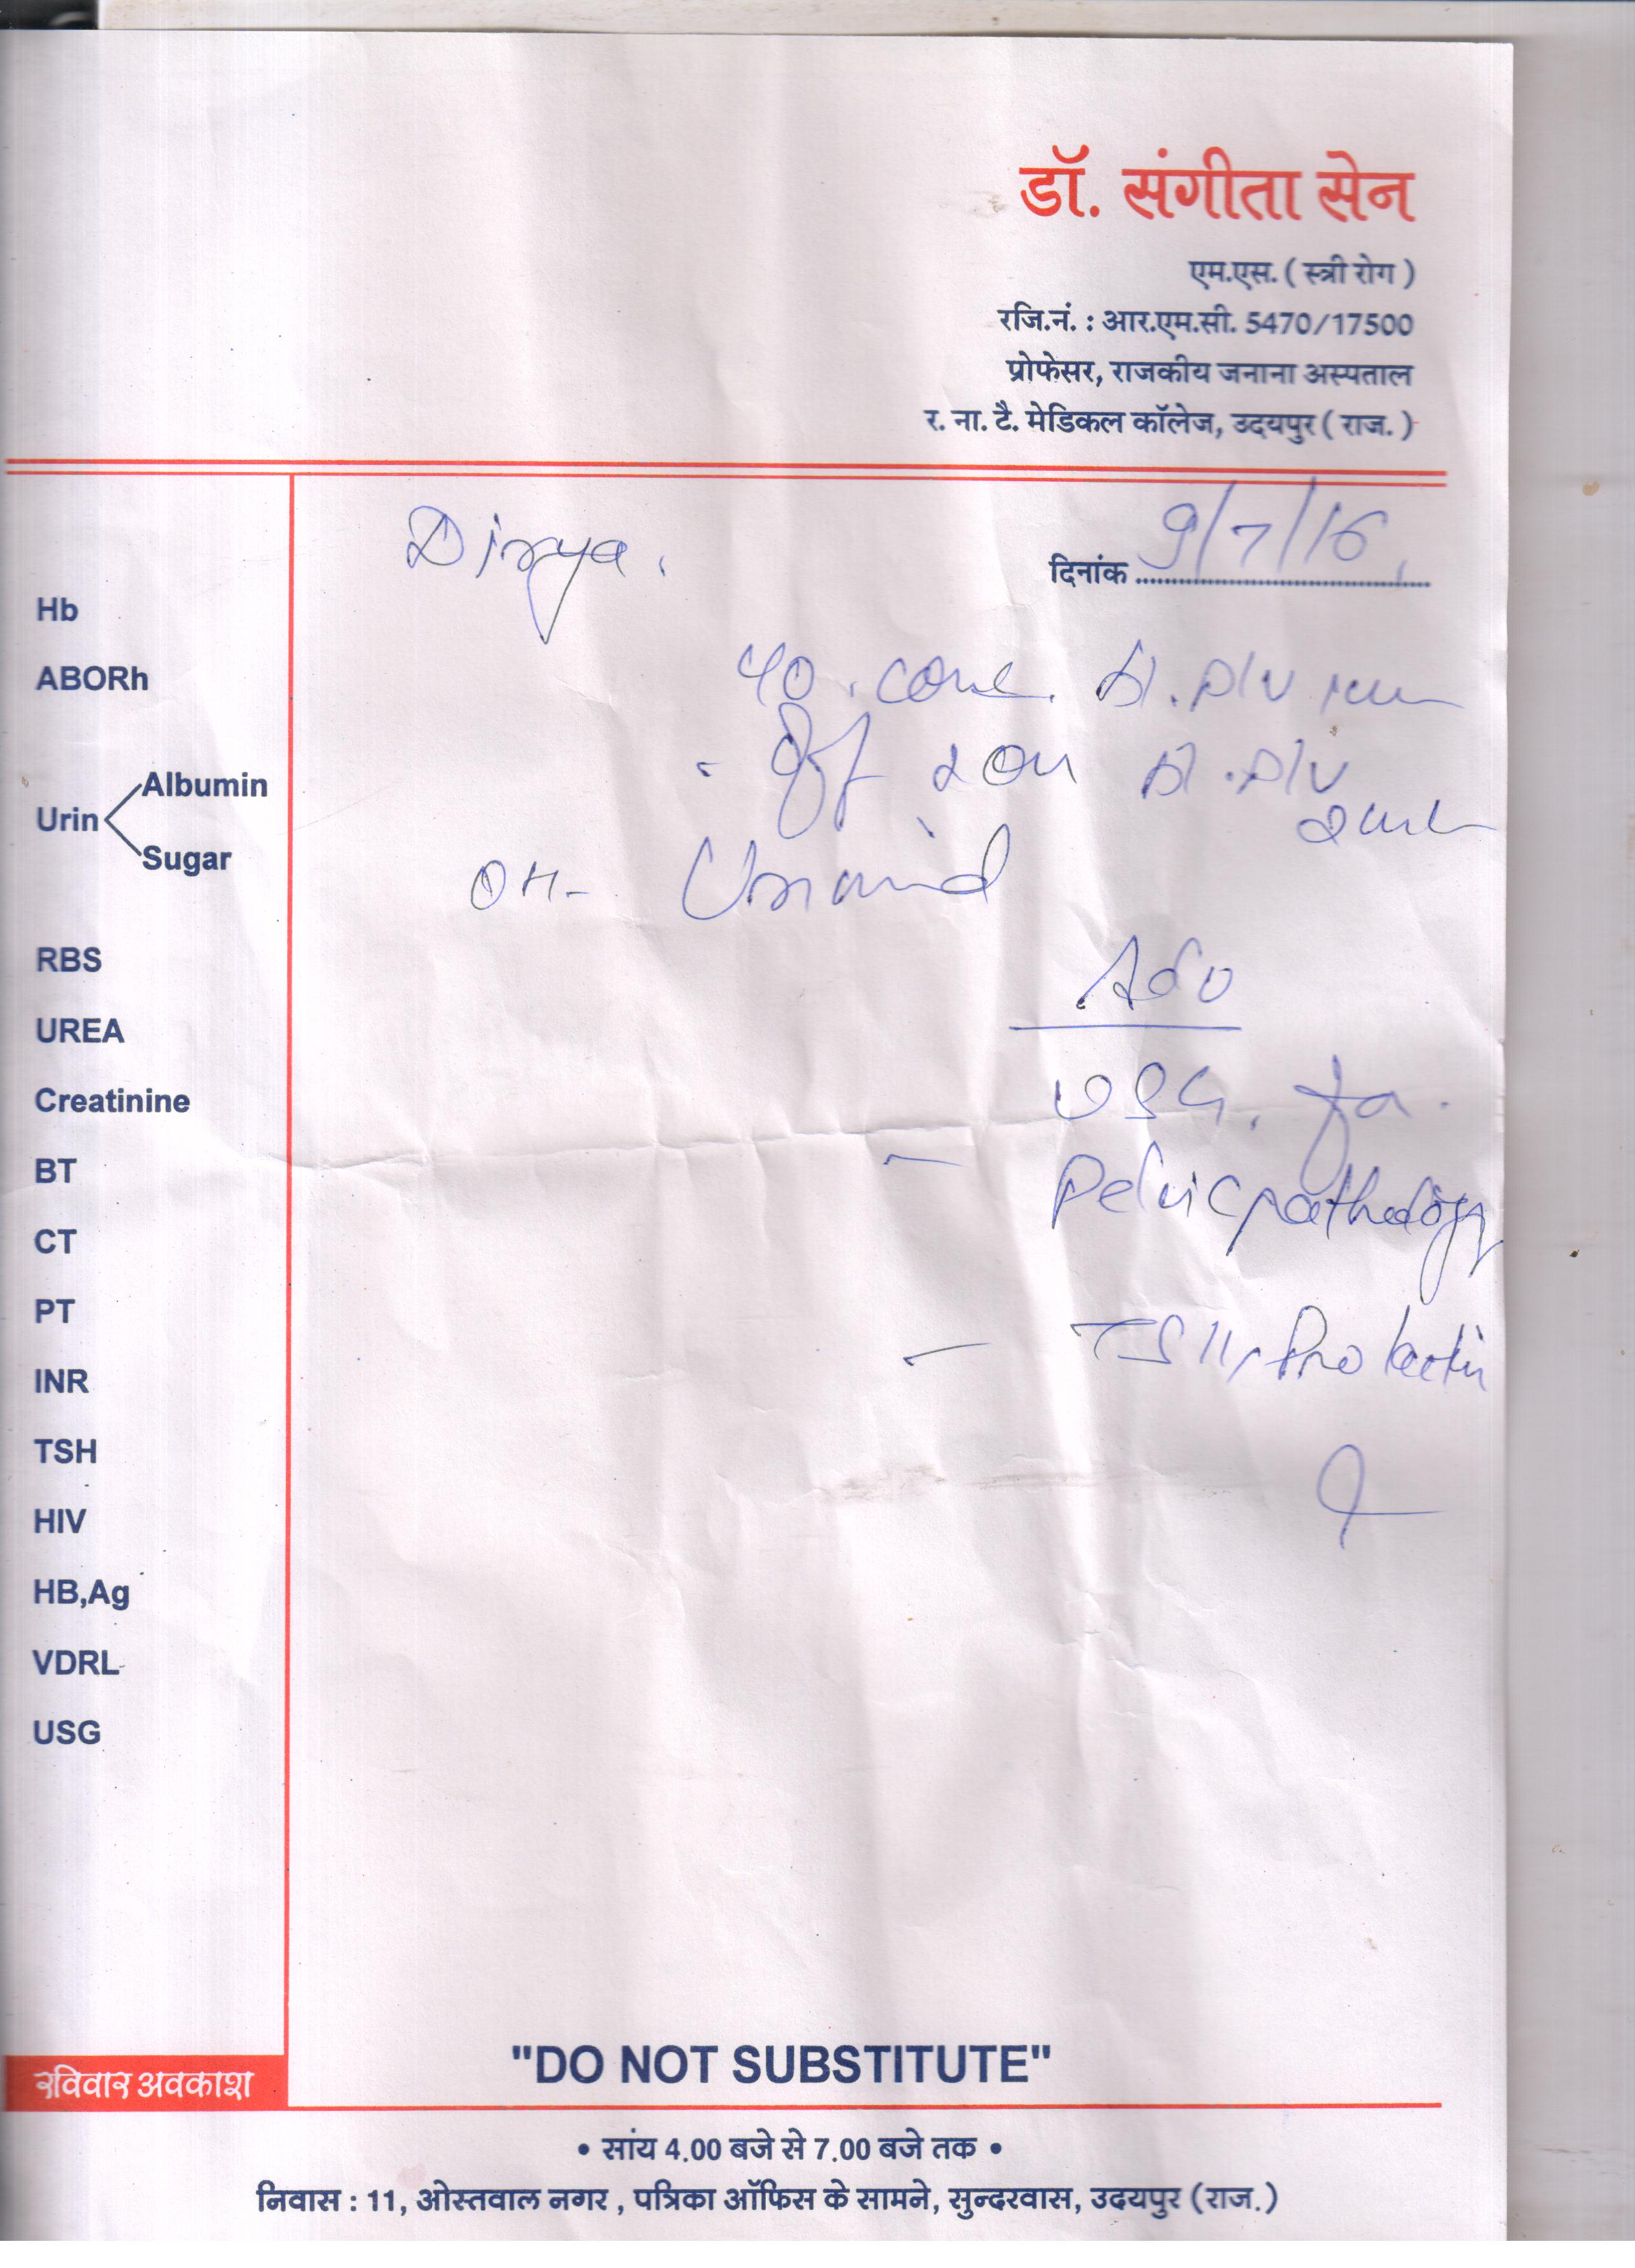 डॉ. संगीता सेन
एम.एस. ( स्त्री रोग )
रजि.नं. : आर.एम.सी. 5470/17500
प्रोफेसर, राजकीय जनाना अस्पताल
र. ना. टै. मेडिकल कॉलेज, उदयपुर ( राज. )
Divya.
दिनांक 9/7/16
Hb
ABORh
Urin
Albumin
Sugar
RBS
UREA
Creatinine
BT
CT
PT
INR
TSH
HIV
HB,Ag
VDRL
USG
Bl. P/V
Bl. P/V
OH-
Adv
USG. for
- Pelvic pathology
- TSH, Prolactin
रविवार अवकाश
"DO NOT SUBSTITUTE"
• सांय 4.00 बजे से 7.00 बजे तक •
निवास : 11, ओस्तवाल नगर , पत्रिका ऑफिस के सामने, सुन्दरवास, उदयपुर (राज.)